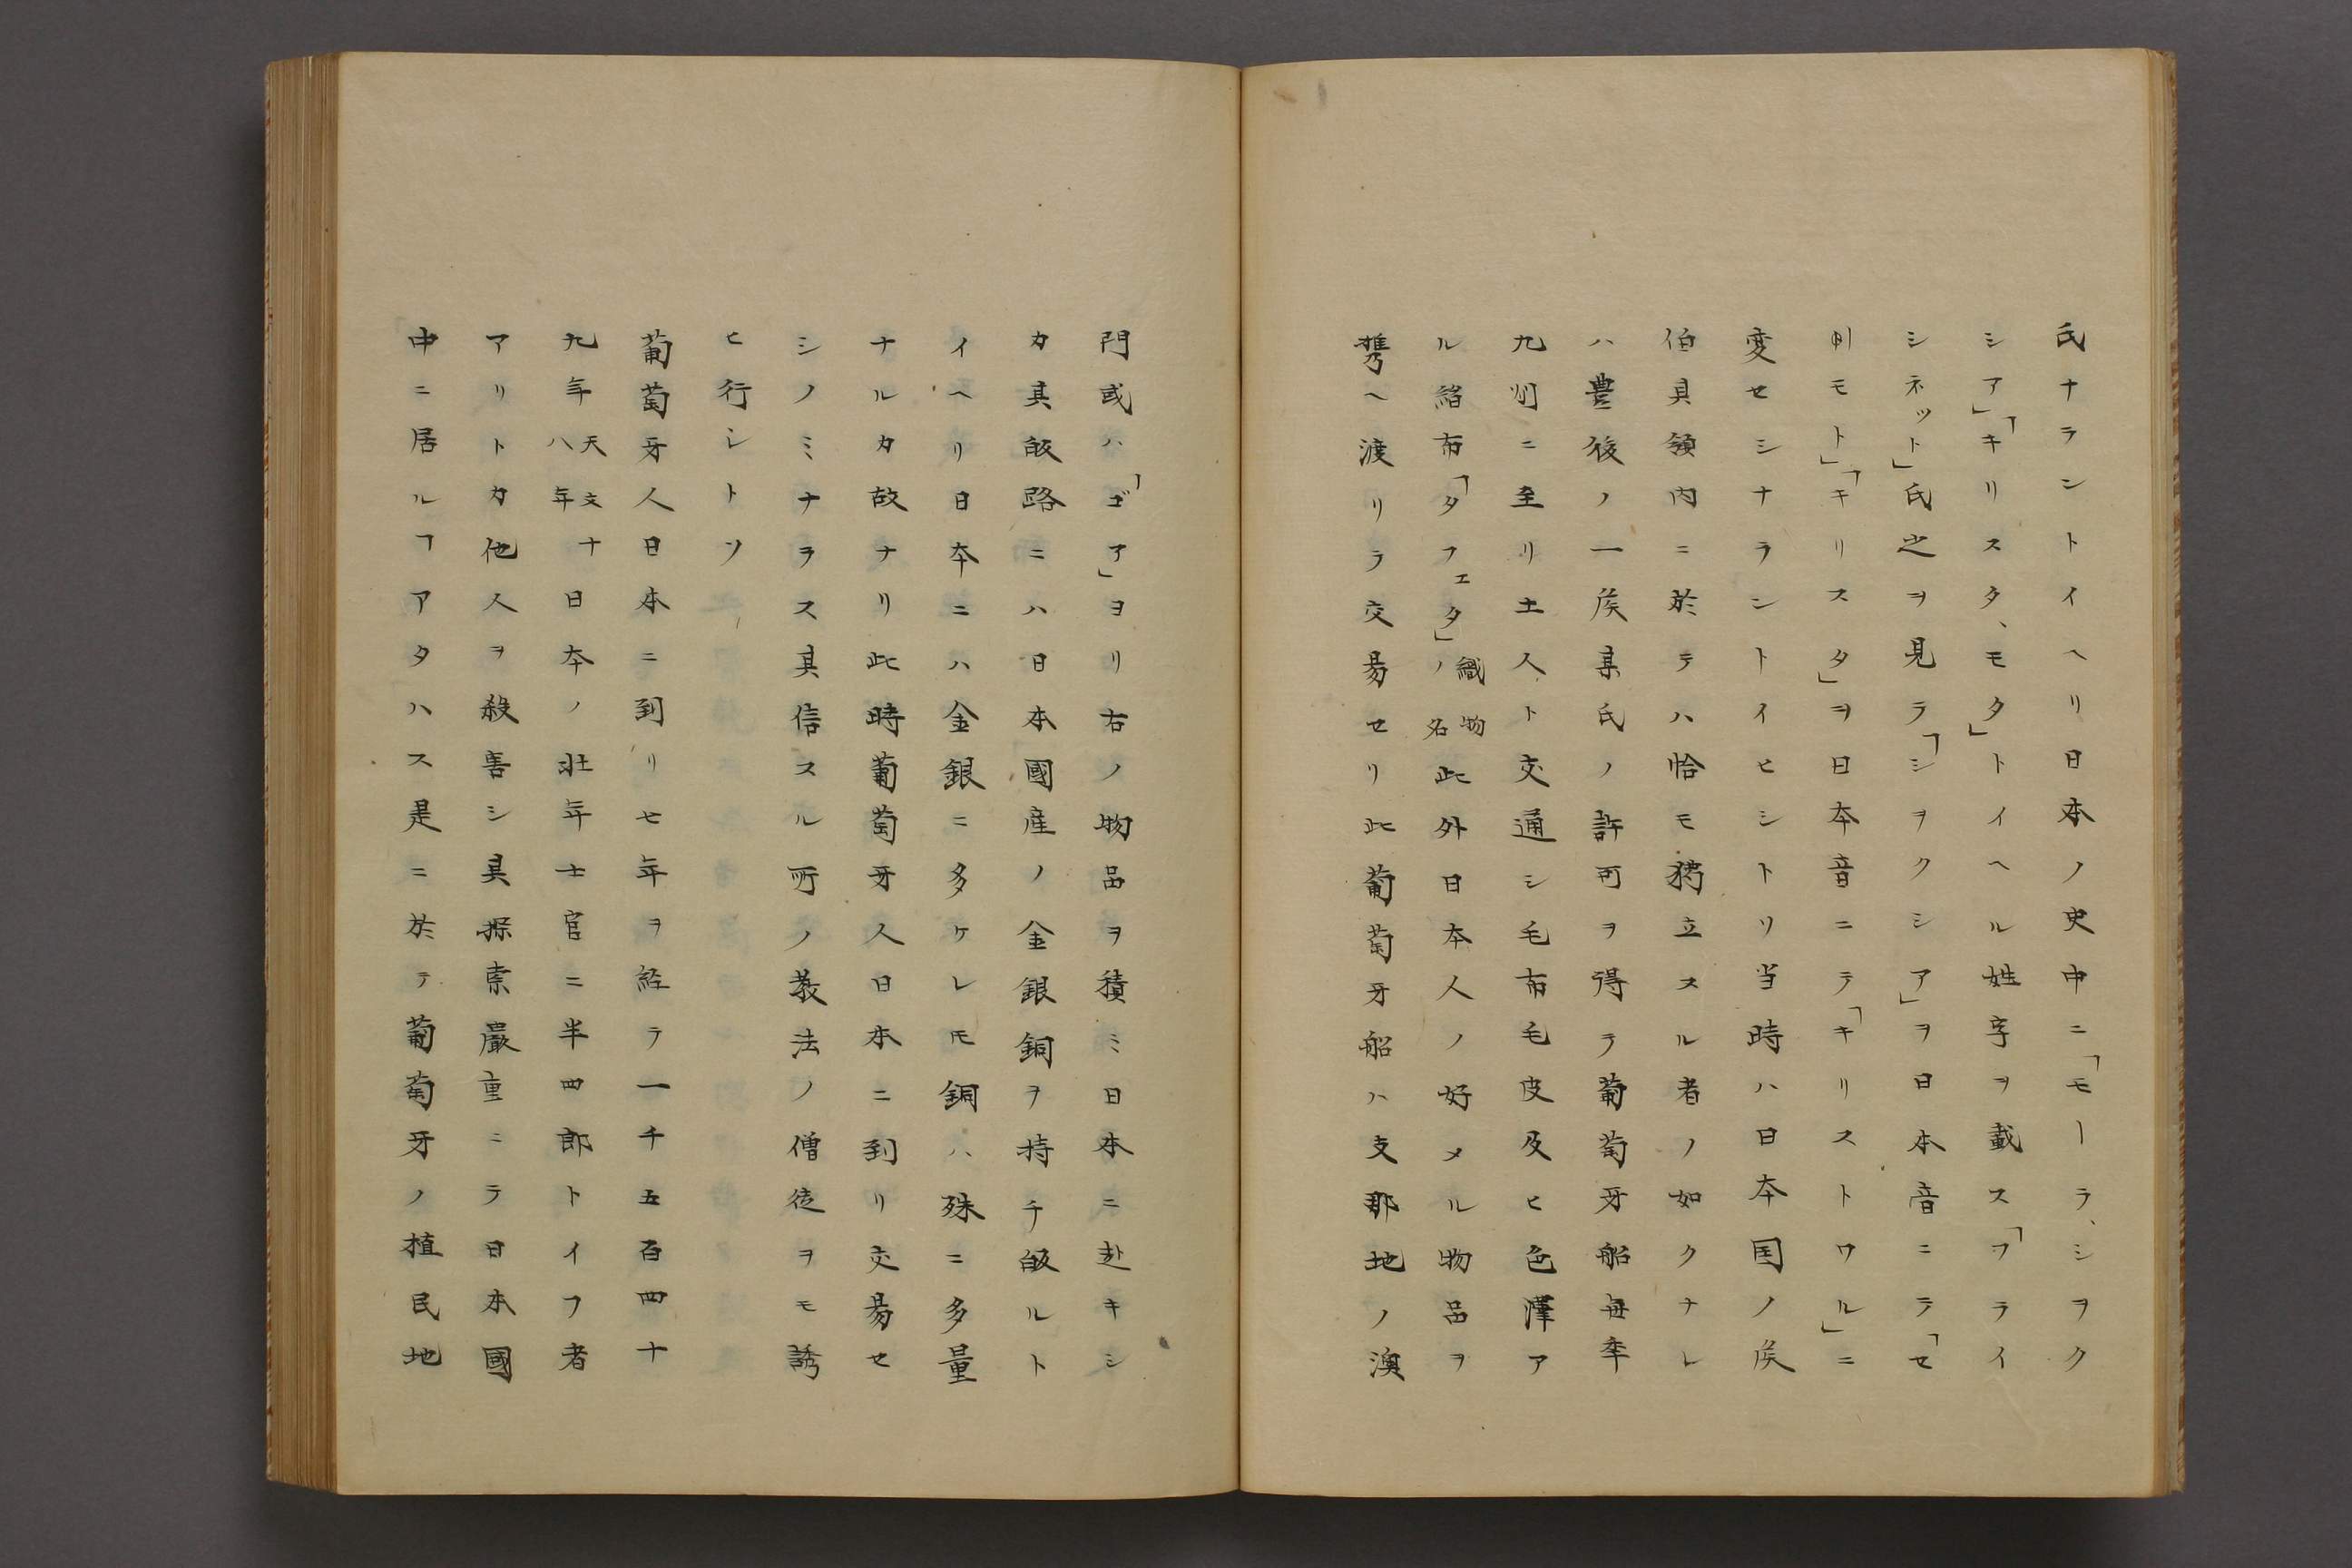 氏ナラントイヘリ日本ノ史中ニ「モーラ、シヲク
シア」「キリスタ、モタ」トイヘル姓字ヲ載ス「ヲライ
シネット」氏之ヲ見ラ「シヲクシア」ヲ日本音ニテ「セ
モト」「キリスタ」ヲ日本音ニテ「キリストワル」ニ
変セシナラントイヒシトリ当時ハ日本国ノ侯
伯具領内ニ於テハ恰モ獨立スル者ノ如クナレ
ハ豊後ノ一侯某氏ノ許可ヲ得テ葡萄牙船毎年
九州ニ至リ土人ト交通シ毛布毛皮及ヒ色澤ア
ル絹布「タフエタ」ノ織物名此外日本人ノ好メル物品ヲ
携ヘ渡リテ交易セリ此葡萄牙船ハ支那地ノ澳
門或ハ「ゴア」ヨリ右ノ物品ヲ積ミ日本ニ赴キシ
カ其皈路ニハ日本國産ノ金銀銅ヲ持チ皈ルト
イヘリ日本ニハ金銀ニ多ケレ𪜈銅ハ殊ニ多量
ナルカ故ナリ此時葡萄牙人日本ニ到リ交易セ
シノミナラス其信スル所ノ教法ノ僧徒ヲモ誘
ヒ行シトソ
葡萄牙人日本ニ到リ七年ヲ経テ一千五百四十
九年天文十八年日本ノ壮年士官ニ半四郎トイフ者
アリトカ他人ヲ殺害シ其探索嚴重ニテ日本國
中ニ居ルヿアタハス是ニ於テ葡萄牙ノ植民地